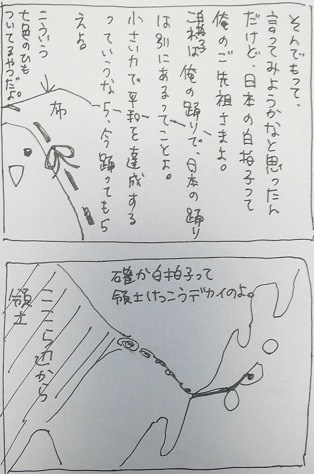 そんでもって、
言ってみようかなと思ったん
だけど、日本の白拍子って
俺のご先祖さまよ。
は俺の踊りで、日本の踊り
は別にあるってことよ。
小さい力で平和を達成する
っていうなら、今踊ってもら
えるよ。
布
こういう
七色のひも
ついてるやつだよ。
確か白拍子って
領土けっこうデカイのよ。
ここら辺から
領土